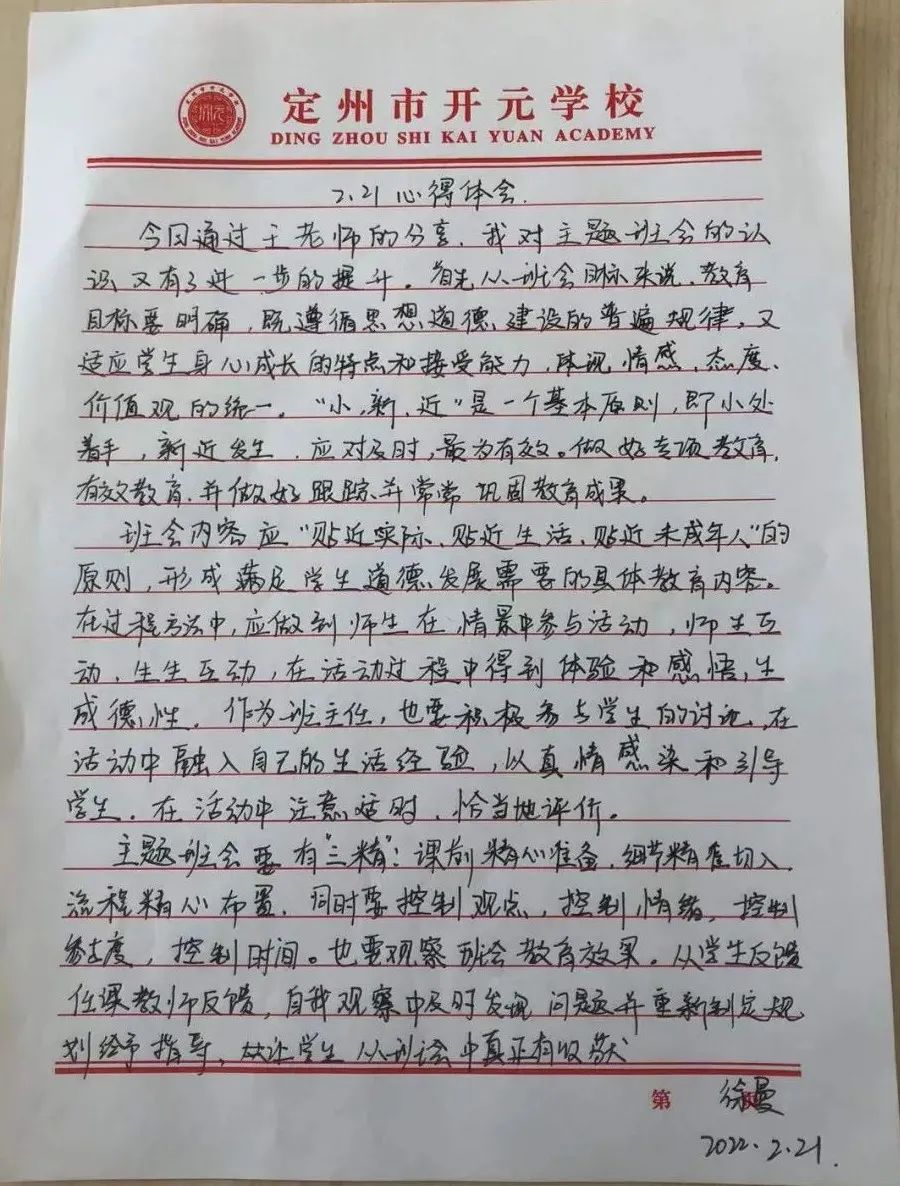 定州市开元学校
DING ZHOU SHI KAI YUAN ACADEMY
2.21 心得体会.
今日通过王老师的分享，我对主题班会的认
识又有了进一步的提升。首先从班会目标来说，教育
目标要明确，既遵循思想道德建设的普遍规律，又
适应学生身心成长的特点和接受能力，体现情感，态度、
价值观的统一。“小，新，近”是一个基本原则，即小处
着手，新近发生，应对及时，最为有效。做好专项教育，
有效教育，并做好跟踪，并常常巩固教育成果。
班会内容应“贴近实际、贴近生活、贴近未成年人”的
原则，形成满足学生道德发展需要的具体教育内容。
在过程方法中，应做到师生在情景中参与活动，师生互
动，生生互动，在活动过程中得到体验和感悟，生
成德性。作为班主任，也要积极参与学生的讨论，在
活动中融入自己的生活经验，以真情感染和引导
学生。在活动中注意适时，恰当地评价。
主题班会要有“三精”：课前精心准备，细节精准切入，
流程精心布置，同时要控制观点，控制情绪，控制
参与度，控制时间。也要观察班会教育效果。从学生反馈
任课教师反馈，自我观察中及时发现问题并重新制定规
划给予指导，让学生从班会中真正有收获
第
徐曼
2022.2.21.